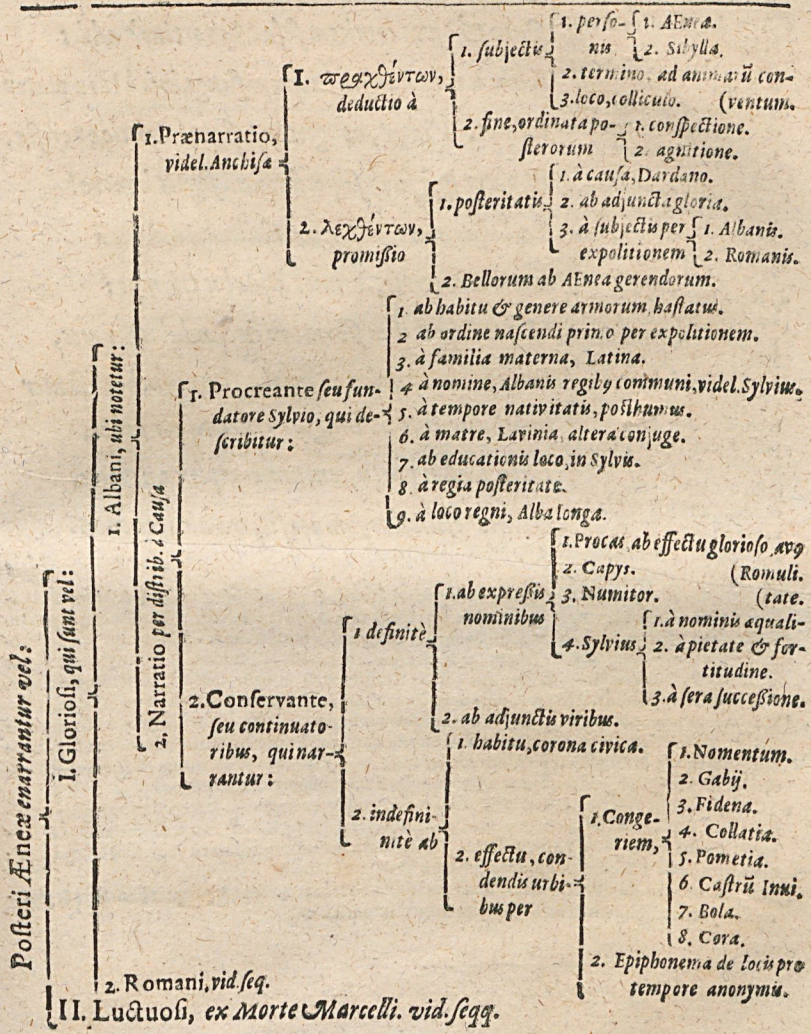 Posteri Æneæ enarrantur vel:
I. Gloriosi, qui sunt vel:
1. Albani, ubi notetur:
1. Prænarratio,
videl. Anchisæ
I. πραχθέντων,
deductio à
1. subjectis
1. perso-
nis
1. AEnea.
2. Sibylla.
2. termino, ad animarū con-
(ventum.
3. loco, colliculo.
2. fine, ordinata po-
sterorum
1. conspectione.
2. agnitione.
2. λεχθέντων,
promissio
1. posteritatis
1. à causa, Dardano.
2. ab adjuncta gloria.
3. à subjectis per
expolitionem
1. Albanis.
2. Romanis.
2. Bellorum ab AEnea gerendorum.
2. Narratio per distrib. à Causa
1. Procreante seu fun-
datore Sylvio, qui de-
scribitur:
1 ab habitu & genere armorum, hastatus.
2 ab ordine nascendi primo per expolitionem.
3. à familia materna, Latina.
4 à nomine, Albanis regibꝰ communi, videl. Sylvius.
5. à tempore nativitatis, posthumus.
6. à matre, Lavinia, altera conjuge.
7. ab educationis loco, in Sylvis.
8. à regia posteritate.
9. à loco regni, Alba longa.
2. Conservante,
seu continuato-
ribus, qui nar-
rantur:
1 definitè
1. ab expressis
nominibus
1. Procas, ab effectu glorioso, avꝰ
(Romuli.
2. Capys.
3. Numitor.
4. Sylvius
1. à nominis æquali-
(tate.
2. à pietate & for-
titudine.
3. à sera successione.
2. ab adjunctis viribus.
2. indefini-
nitè ab
1. habitu, corona civica.
2. effectu, con-
dendis urbi-
bus per
1. Conge-
riem,
1. Nomentum.
2. Gabij.
3. Fidena.
4. Collatia.
5. Pometia.
6 Castrū Inui.
7. Bola.
8. Cora.
2. Epiphonema de locis pro
tempore anonymis.
2. Romani, vid. seq.
II. Luctuosi, ex Morte Marcelli. vid. seqq.